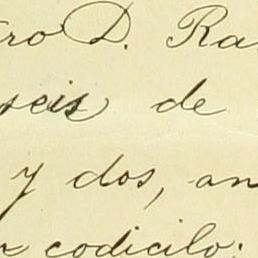 ro D. Ra
seis de
y dos, an
codicilo;